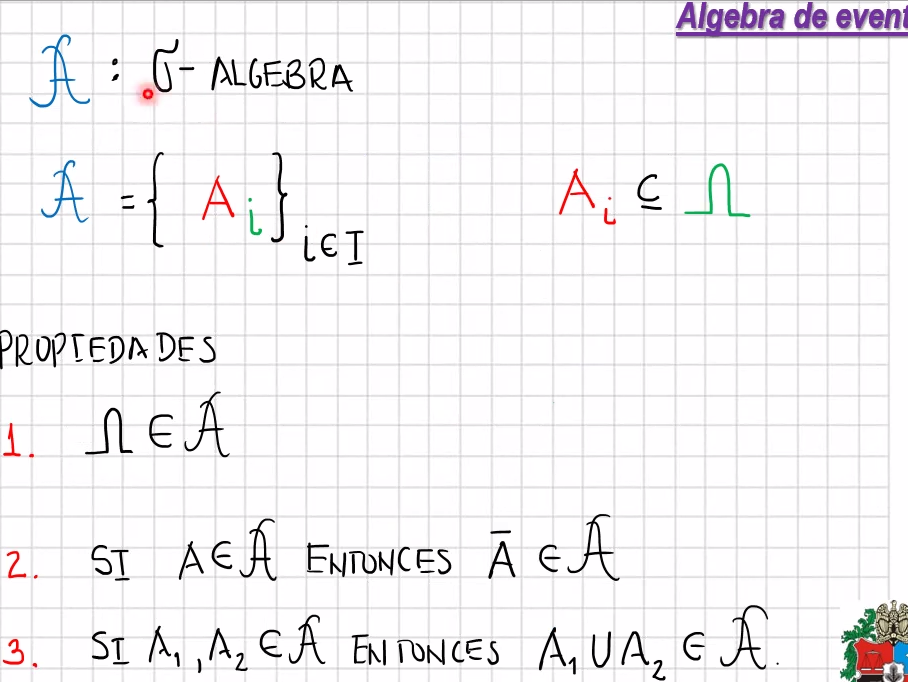 Algebra de event
𝒜 : σ- ALGEBRA
𝒜 = { A_i }_{i∈I} A_i ⊆ Ω
PROPIEDADES
1. Ω ∈ 𝒜
2. SI A ∈ 𝒜 ENTONCES Ā ∈ 𝒜
3. SI A₁, A₂ ∈ 𝒜 ENTONCES A₁ ∪ A₂ ∈ 𝒜.